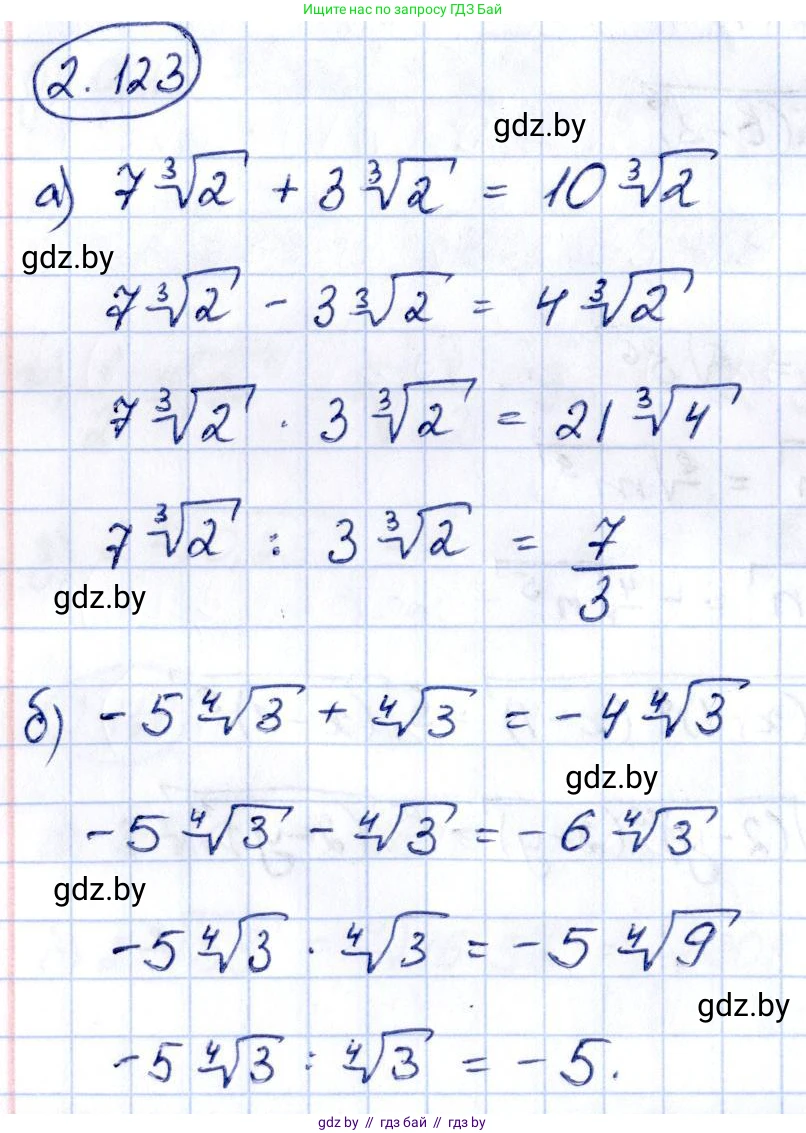 Ищите нас по запросу ГДЗ Бай
2.123
gdz.by
а) 7∛2 + 3∛2 = 10∛2
gdz.by
7∛2 - 3∛2 = 4∛2
7∛2 · 3∛2 = 21∛4
7∛2 : 3∛2 = 7/3
gdz.by
б) -5∜3 + ∜3 = -4∜3
gdz.by
-5∜3 - ∜3 = -6∜3
gdz.by
-5∜3 · ∜3 = -5∜9
gdz.by
-5∜3 : ∜3 = -5.
gdz.by // гдз бай // гдз by